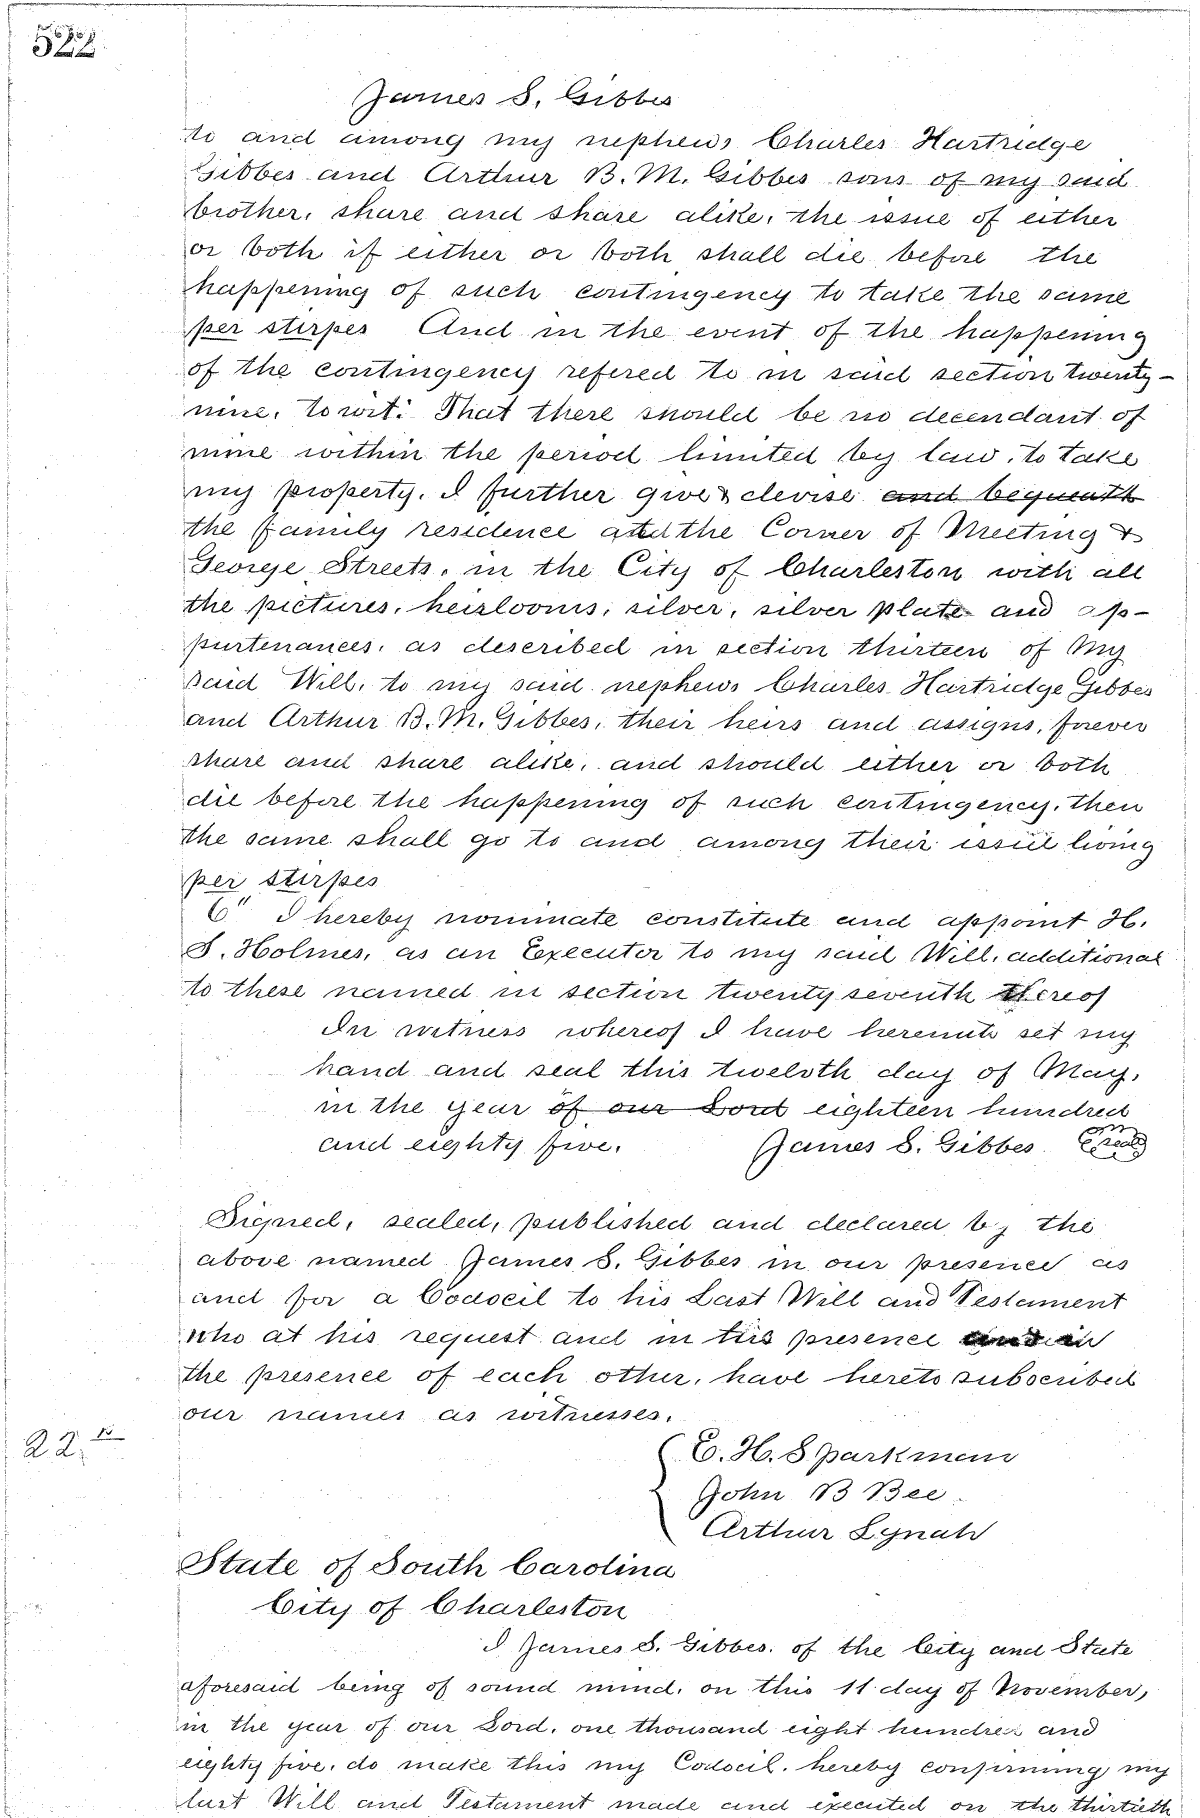 522
James S. Gibbes
to and among my nephews Charles Hartridge
Gibbes and Arthur B. M. Gibbes sons of my said
brother, share and share alike, the issue of either
or both if either or both shall die before the
happening of such contingency to take the same
per stirpes And in the event of the happening
of the contingency refered to in said section twenty-
nine, to wit: That there should be no decendant of
mine within the period limited by law, to take
my property. I further give & devise and bequeath
the family residence at the Corner of Meeting &
George Streets, in the City of Charleston with all
the pictures, heirlooms, silver, silver plate and ap-
purtenances, as described in section thirteen of My
said Will, to my said nephews Charles Hartridge Gibbes
and Arthur B. M. Gibbes, their heirs and assigns, forever
share and share alike, and should either or both
die before the happening of such contingency, then
the same shall go to and among their issue living
per stirpes
6" I hereby nominate constitute and appoint H.
S. Holmes, as an Executor to my said Will, additional
to these named in section twenty seventh thereof
In witness whereof I have hereunto set my
hand and seal this twelvth day of May,
in the year of our Lord eighteen hundred
and eighty five. James S. Gibbes seal
Signed, sealed, published and declared by the
above named James S. Gibbes in our presence as
and for a Codocil to his Last Will and Testament
who at his request and in his presence and in
the presence of each other, have hereto subscribed
our names as witnesses.
22.
E. H. Sparkman
John B Bee
Arthur Lynah
State of South Carolina
City of Charleston
I James S. Gibbes. of the City and State
aforesaid being of sound mind, on this 11 day of November,
in the year of our Lord, one thousand eight hundred and
eighty five, do make this my Codocil. hereby confirming my
last Will and Testament made and executed on the thirtieth